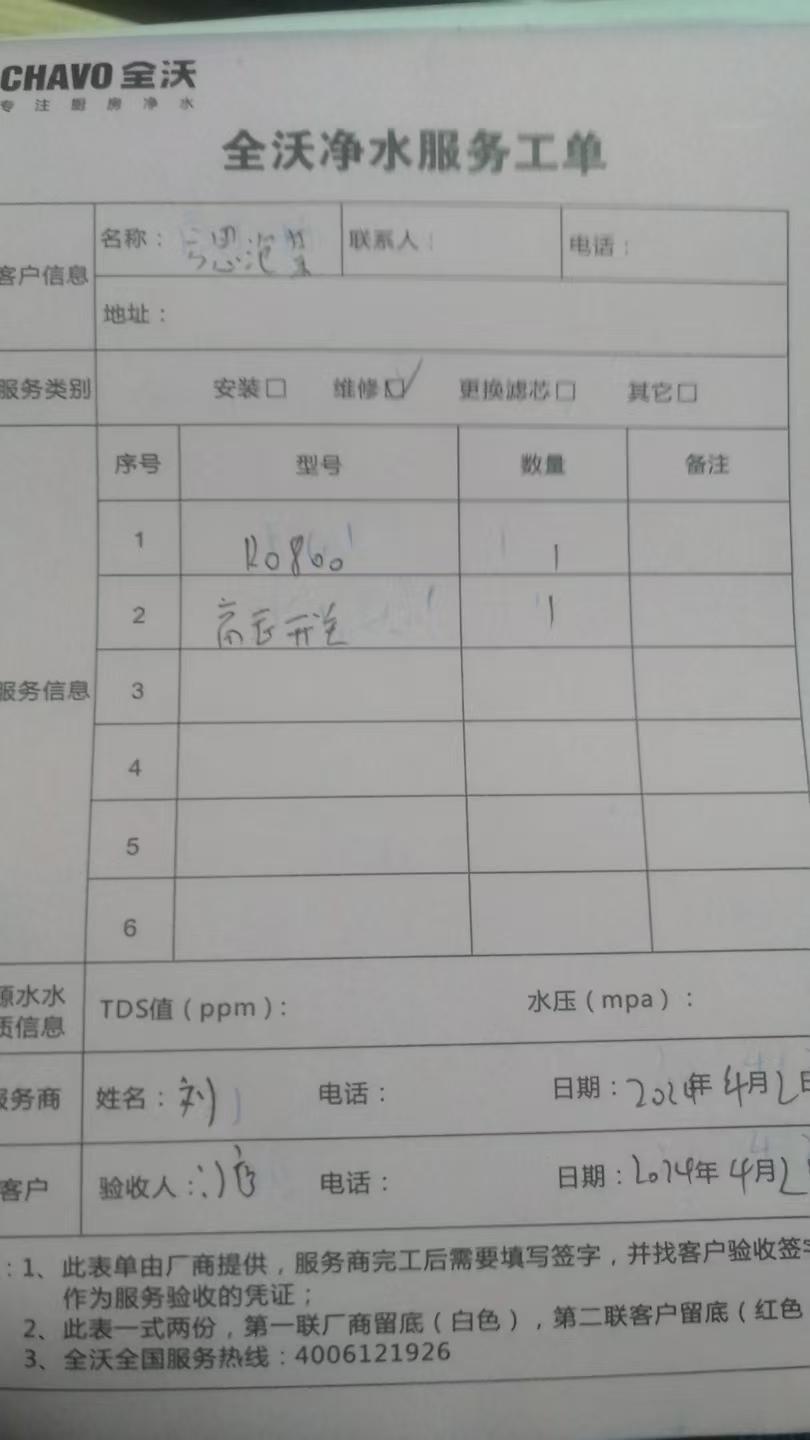 CHAVO 全沃
专注厨房净水
全沃净水服务工单
客户信息
名称： 联系人： 电话：
地址：
服务类别 安装□ 维修☑ 更换滤芯□ 其它□
服务信息
序号 型号 数量 备注
1 RO800 1
2 高压开关 1
3
4
5
6
源水水
质信息
TDS值（ppm）： 水压（mpa）：
服务商 姓名：刘 电话： 日期：2024年4月2日
客户 验收人： 电话： 日期：2024年4月2
：1、此表单由厂商提供，服务商完工后需要填写签字，并找客户验收签字
作为服务验收的凭证；
2、此表一式两份，第一联厂商留底（白色），第二联客户留底（红色
3、全沃全国服务热线：4006121926